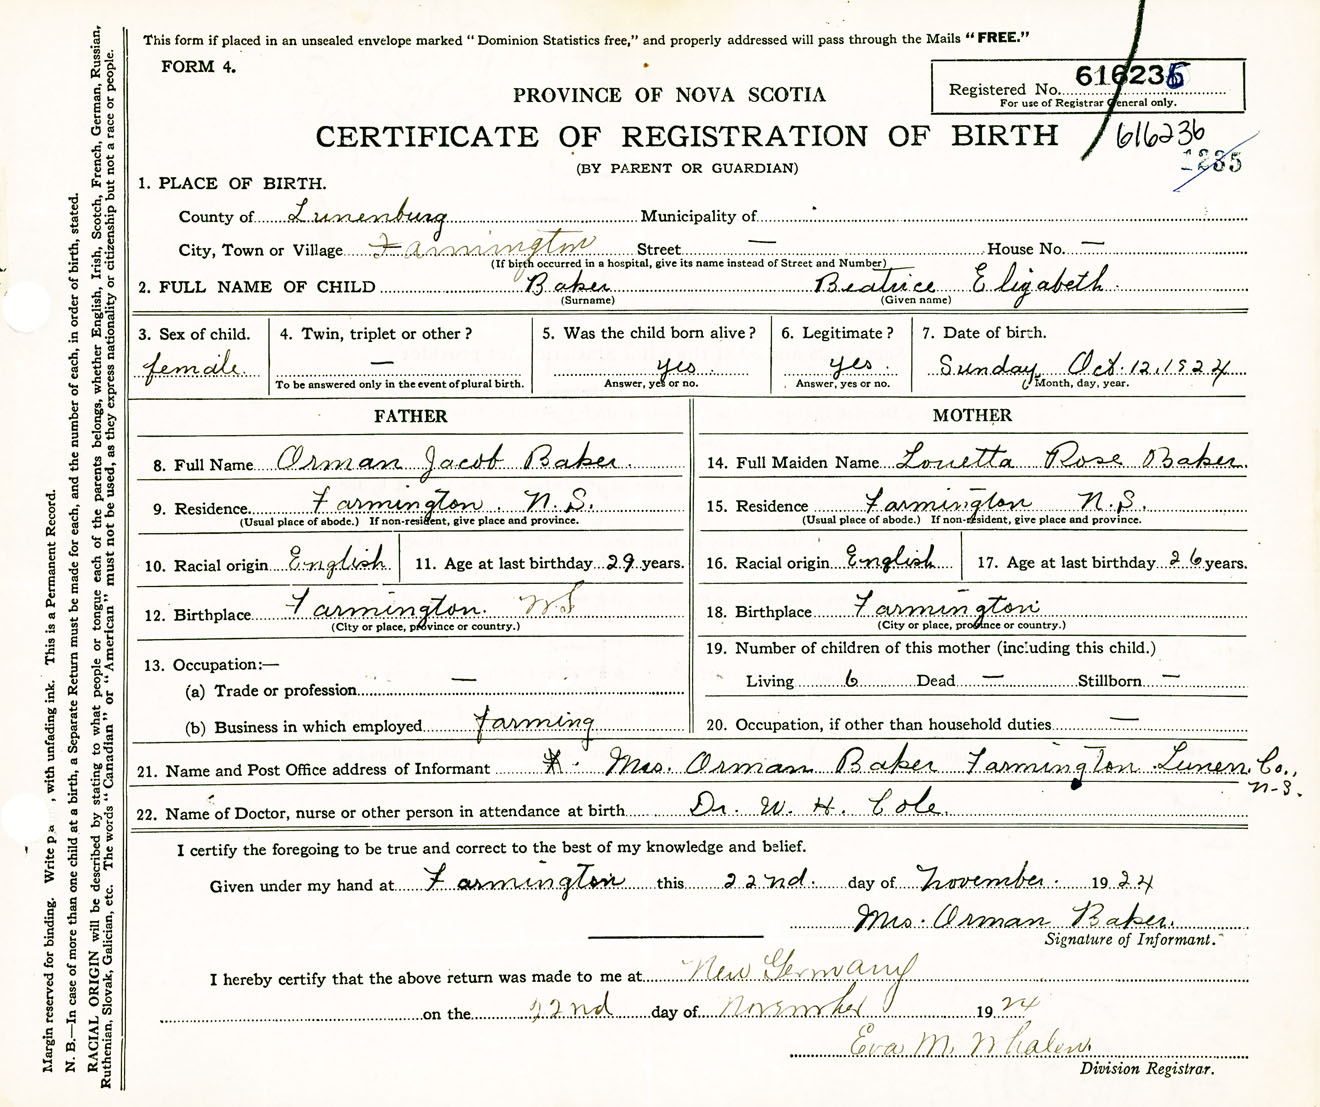 This form if placed in an unsealed envelope marked "Dominion Statistics free," and properly addressed will pass through the Mails "FREE."
FORM 4.
Registered No. 616236
For use of Registrar General only.
PROVINCE OF NOVA SCOTIA
CERTIFICATE OF REGISTRATION OF BIRTH
616236
1235
(BY PARENT OR GUARDIAN)
1. PLACE OF BIRTH.
County of Lunenburg Municipality of
City, Town or Village Farmington Street — House No. —
(If birth occurred in a hospital, give its name instead of Street and Number)
2. FULL NAME OF CHILD Baker Beatrice Elizabeth
(Surname) (Given name)
3. Sex of child. 4. Twin, triplet or other? 5. Was the child born alive? 6. Legitimate? 7. Date of birth.
female — yes yes Sunday Oct. 12, 1924
To be answered only in the event of plural birth. Answer, yes or no. Answer, yes or no. Month, day, year.
FATHER MOTHER
8. Full Name Orman Jacob Baker. 14. Full Maiden Name Louetta Rose Baker.
9. Residence Farmington. N.S. 15. Residence Farmington N.S.
(Usual place of abode.) If non-resident, give place and province. (Usual place of abode.) If non-resident, give place and province.
10. Racial origin English 11. Age at last birthday 29 years. 16. Racial origin English 17. Age at last birthday 26 years.
12. Birthplace Farmington. N.S 18. Birthplace Farmington
(City or place, province or country.) (City or place, province or country.)
13. Occupation:— 19. Number of children of this mother (including this child.)
(a) Trade or profession — Living 6 Dead — Stillborn —
(b) Business in which employed farming 20. Occupation, if other than household duties —
21. Name and Post Office address of Informant Mrs. Orman Baker Farmington Lunen. Co., N.S.
22. Name of Doctor, nurse or other person in attendance at birth Dr. W. H. Cole.
I certify the foregoing to be true and correct to the best of my knowledge and belief.
Given under my hand at Farmington this 22nd. day of November. 1924
Mrs. Orman Baker.
Signature of Informant.
I hereby certify that the above return was made to me at New Germany
on the 22nd day of November 1924
Eva M. Whalen.
Division Registrar.
Margin reserved for binding. Write , with unfading ink. This is a Permanent Record.
N. B.—In case of more than one child at a birth, a Separate Return must be made for each, and the number of each, in order of birth, stated.
RACIAL ORIGIN will be described by stating to what people or tongue each of the parents belongs, whether English, Irish, Scotch, French, German, Russian,
Ruthenian, Slovak, Galician, etc. The words "Canadian" or "American" must not be used, as they express nationality or citizenship but not a race or people.